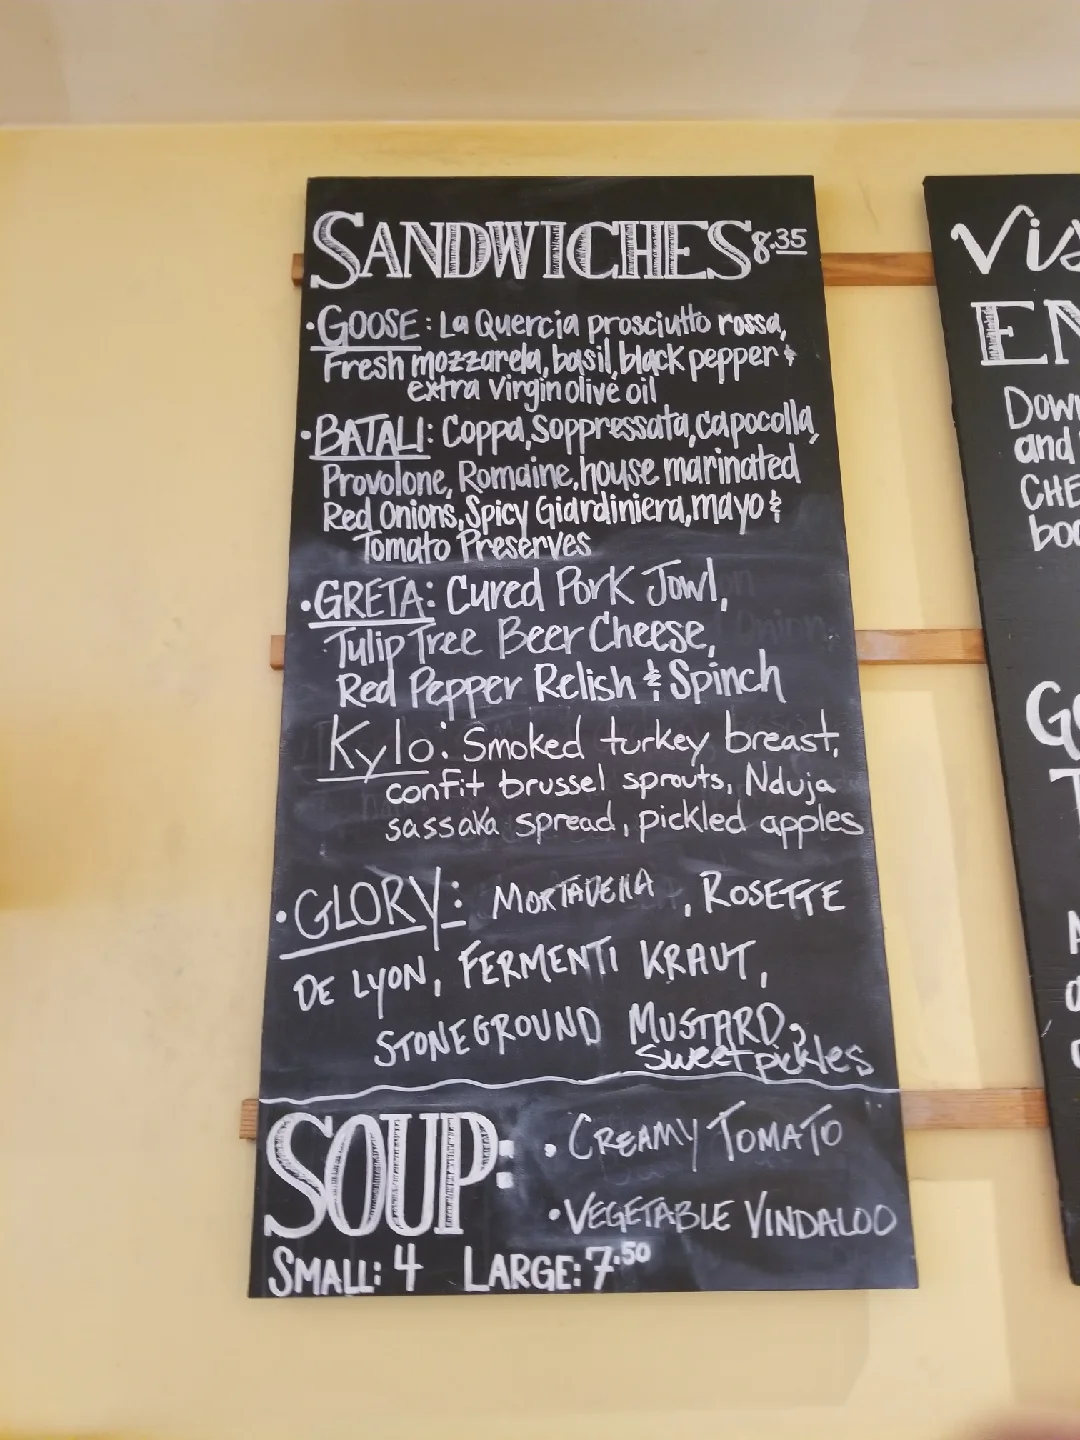 SANDWICHES 8.35
• GOOSE: La Quercia prosciutto rossa,
Fresh mozzarela, basil, black pepper &
extra virgin olive oil
• BATALI: Coppa, Soppressata, capocolla,
Provolone, Romaine, house marinated
Red Onions, Spicy Giardiniera, mayo &
Tomato Preserves
• GRETA: Cured Pork Jowl,
Tulip Tree Beer Cheese,
Red Pepper Relish & Spinch
Kylo: Smoked turkey breast,
confit brussel sprouts, Nduja
sassaka spread, pickled apples
• GLORY: MORTADELLA, ROSETTE
DE LYON, FERMENTI KRAUT,
STONEGROUND MUSTARD,
sweet pickles
SOUP: • CREAMY TOMATO
• VEGETABLE VINDALOO
SMALL: 4 LARGE: 7.50
Vis
EN
Down
and
CHE
boo